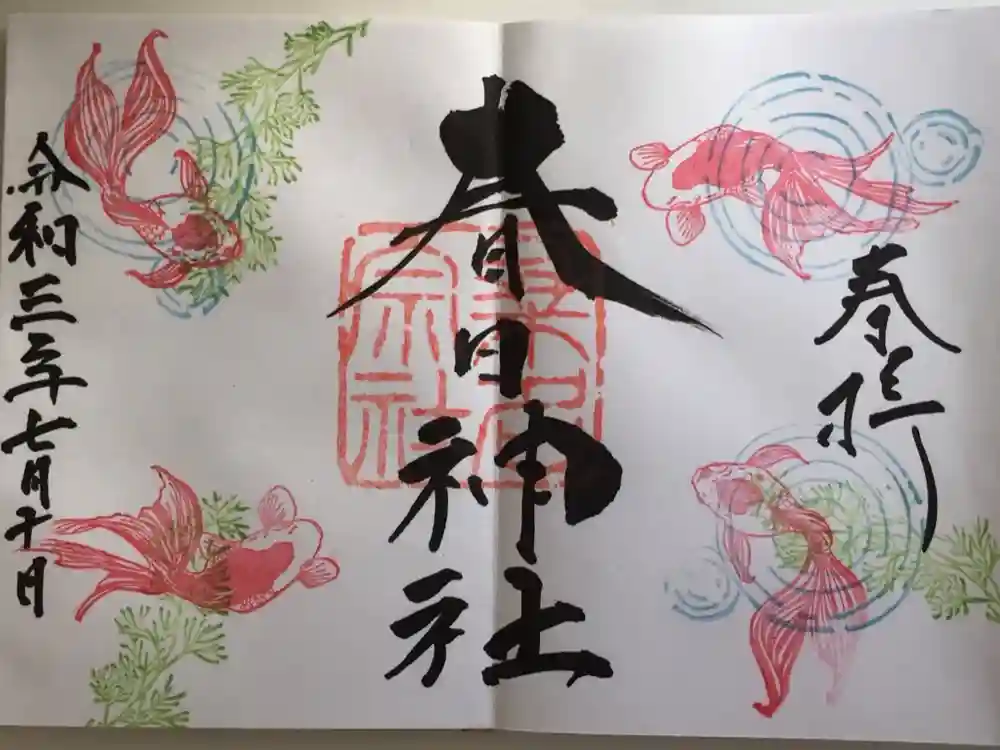 奉拝
春日神社
令和三年七月十日